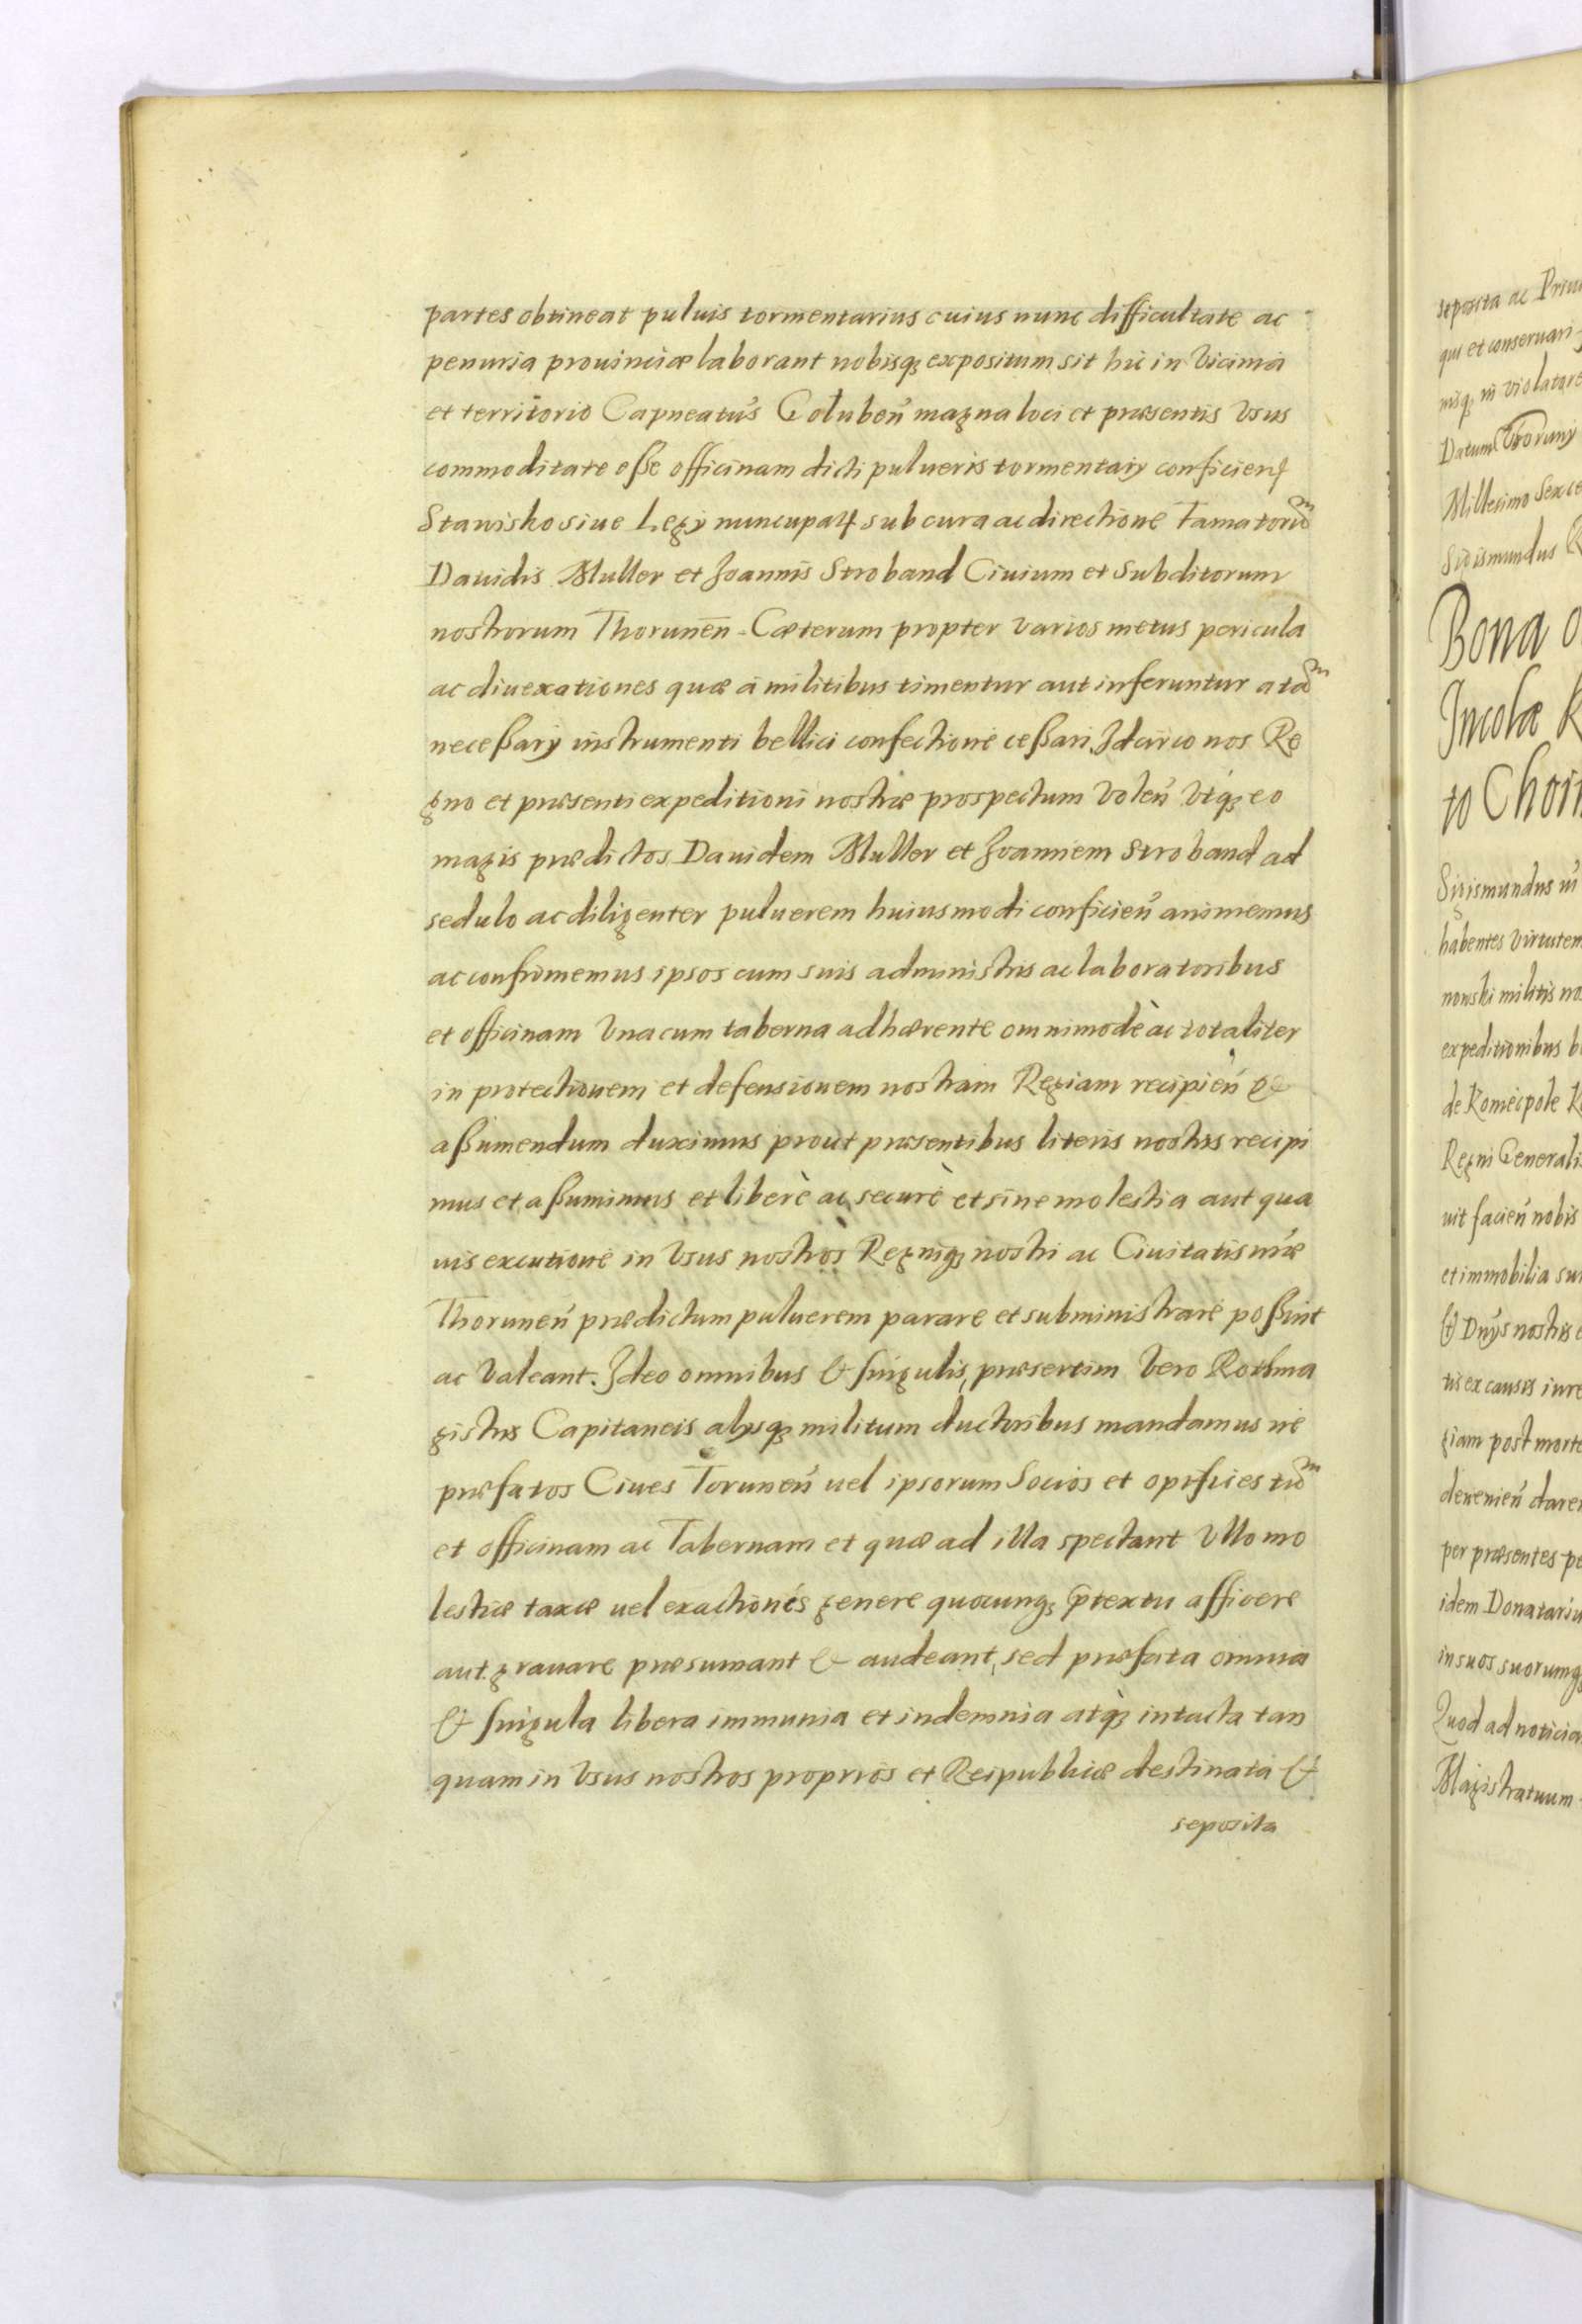 partes obtineat puluis tormentarius cuius nunc difficultate ac
penuria prouinciæ laborant nobisq; expositum sit hic in Vicinia
et territorio Capneatus Goluben̄ magna loci et præsentis Vsus
commoditate eße officinam dicti pulueris tormentarij conficien
Stanisko siue Legÿ nuncupat sub cura ac directione Famatorũ
Dauidis Muller et Joannis Stroband Ciuium et Subditorum
nostrorum Thorunen̄ - Cæterum propter varios metus pericula
ac diuexationes quæ à militibus timentur aut inferuntur a tã
neceßarÿ instrumenti bellici confectione ceßari, Idcirco nos Re
gno et præsenti expeditioni nostræ prospectum Volen̄ Vtq; eo
magis prædictos Dauidem Muller et Joannem Stroband ad
sedulo ac diligenter puluerem huiusmodi conficien̄ animemus
ac confirmemus ipsos cum suis administris ac laboratoribus
et officinam Vna cum taberna adhærente omnimodè ac totaliter
in protectionem et defensionem nostram Regiam recipien̄ &
aßumendum duximus prout præsentibus literis nostris recipi
mus et aßumimus et liberè ac securè et sine molestia aut qua
uis excutione in Vsus nostros Regniq; nostri ac Ciuitatis nr̃æ
Thorunen̄ prædictum puluerem parare et subministrare poßint
ac Valeant. Ideo omnibus & singulis, præsertim Vero Rothma
gistris Capitaneis alÿsq; militum ductoribus mandamus ne
præfatos Ciues Torunen̄ uel ipsorum Socios et opifices tũ
et officinam ac Tabernam et quæ ad illa spectant Vllo mo
lestiæ taxæ uel exactionis genere quocunq; p̃textu afficere
aut grauare præsumant & audeant, sed præfata omnia
& singula libera immunia et indemnia atq; intacta tan
quam in Vsus nostros proprios et Reipublicæ destinata &
seposita
seposita ac Priui
qui et conseruari
nisq; in violatare
Datum Thorunÿ
Millesimo Sexce
Sigismundus R
Bona o
Incolæ K
to Choin
Sigismundus iii
habentes Virtutem
nowski militis no
expeditionibus b
de Koniecpole K
Regni Generali
uit facien̄ nobis
et immobilia su
(t) Dnÿs nostris
tis ex causis iure
giam post morte
deuenien̄ dare
per præsentes pe
idem Donatariu
in suos suorumq;
Quod ad noticia
Magistratuum